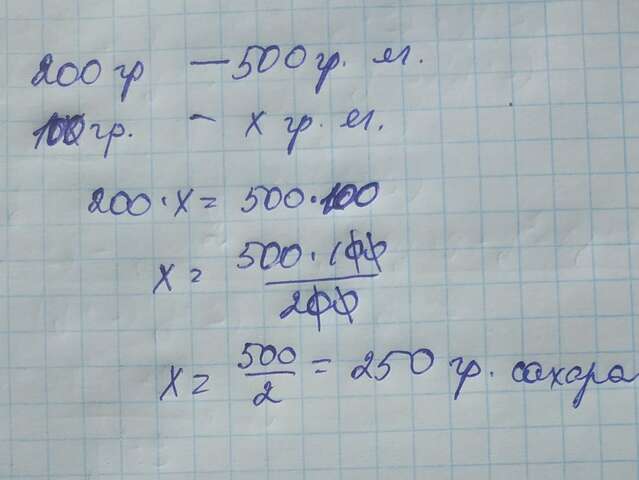 200 гр — 500 гр. яг.
100 гр. - x гр. яг.
200 · x = 500 · 100
x = 500 · 100 / 200
x = 500 / 2 = 250 гр. сахара